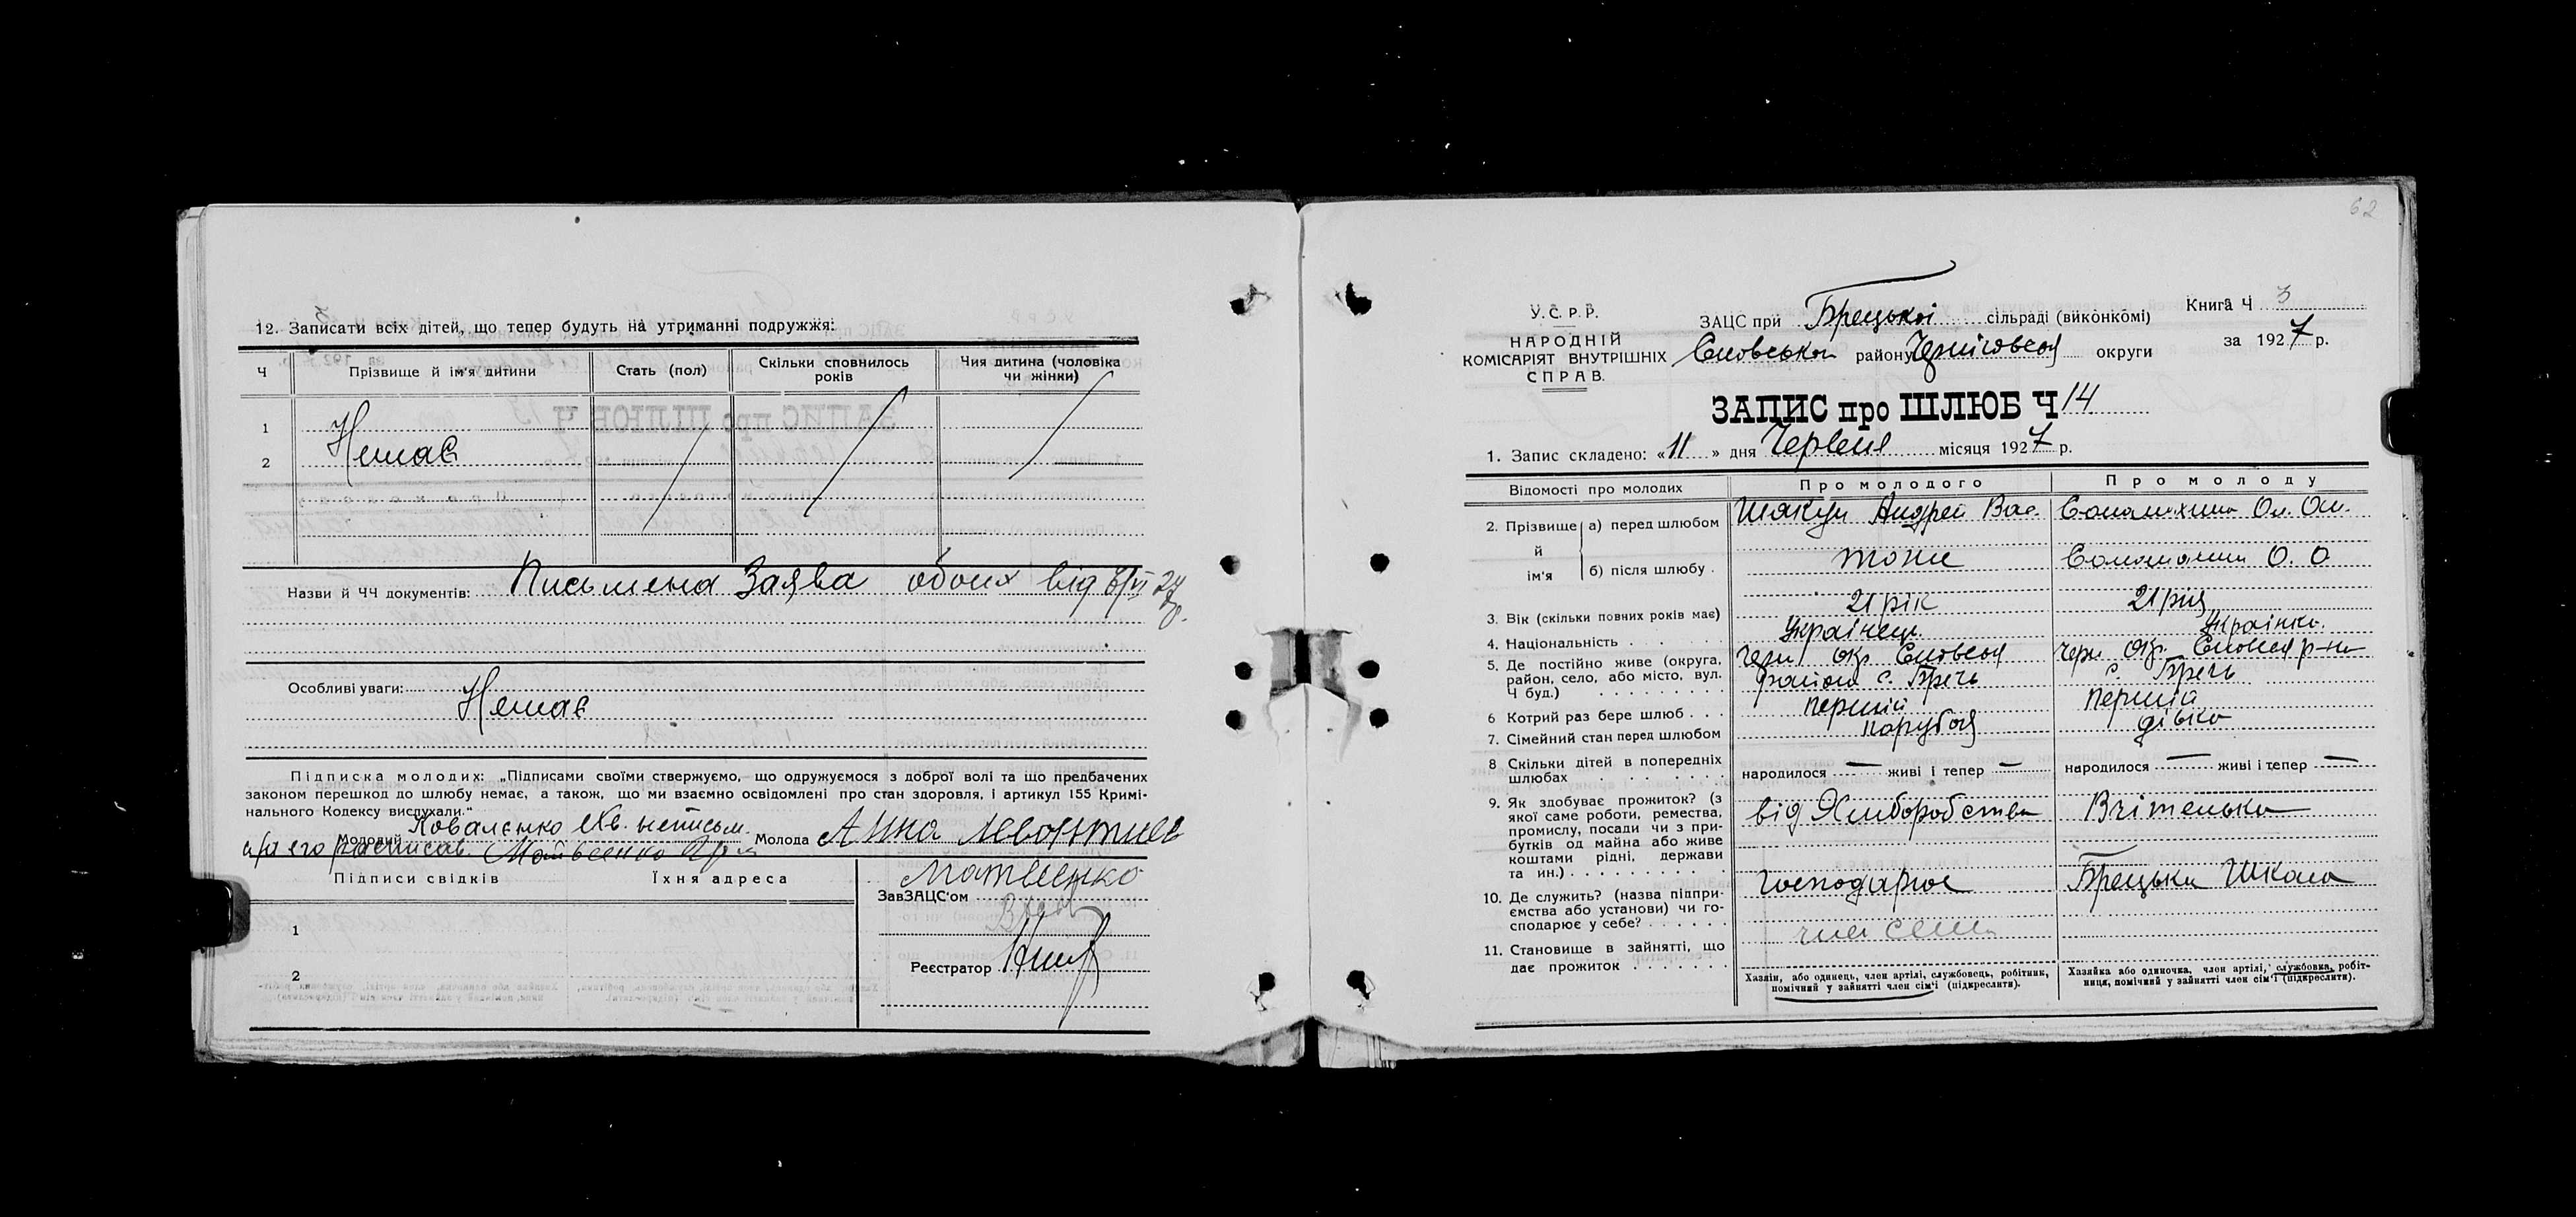 12. Записати всіх дітей, що тепер будуть на утриманні подружжя:
Ч
Прізвище й ім'я дитини
Стать (пол)
Скільки сповнилось
років
Чия дитина (чоловіка
чи жінки)
1
2
Немає
Назви й ЧЧ документів: Письмена Заява обоих від
Особливі уваги:
Немає
Підписка молодих: „Підписами своїми стверджуємо, що одружуємося з доброї волі та що предбачених
законом перешкод до шлюбу немає, а також, що ми взаємно освідомлені про стан здоровля, і артикул 155 Кримі-
нального Кодексу вислухали."
Молодий Коваленко неписьм. Молода Анна
его росписав.
Підписи свідків
Їхня адреса
Матвеенко
ЗавЗАЦС'ом
1
Реєстратор
2
62
У.С.Р.Р.
НАРОДНІЙ
КОМІСАРІЯТ ВНУТРІШНІХ
СПРАВ.
ЗАЦС при Брецькоі сільраді (виконкомі)
Сновськой району округи
Книга Ч 3
за 1927 р.
ЗАПИС про ШЛЮБ Ч 14
1. Запис складено: «11» дня Червня місяця 1927 р.
Відомості про молодих
Про молодого
Про молоду
2. Прізвище й ім'я
а) перед шлюбом
Шакун Андрей Вас.
б) після шлюбу .
О. О
3. Вік (скільки повних років має)
21 рік
21 рік
4. Національність . . . . .
Українець.
Українка.
5. Де постійно живе (округа,
район, село, або місто, вул.
Ч буд.) . . . . . . . . .
Черн. окр. Сновськ
района с. Бречь
Черн. окр. р-на
с. Бречь
6 Котрий раз бере шлюб . . .
перший
перший
7. Сімейний стан перед шлюбом
парубок
дівка
8 Скільки дітей в попередніх
шлюбах . . . . . .
народилося — живі і тепер —
народилося — живі і тепер —
9. Як здобуває прожиток? (з
якої саме роботи, ремества,
промислу, посади чи з при-
бутків од майна або живе
коштами рідні, держави
та ин.) . . . . . . . . . .
від Хліборобства
Вчітелька
10. Де служить? (назва підпри-
ємства або установи) чи го-
сподарює у себе? . . . . . .
Брецька Школа
11. Становище в зайнятті, що
дає прожиток . . . . . . .
член семи
Хазяїн, або одинець, член артілі, службовець, робітник,
помічний у зайнятті член сім'ї (підкреслити).
Хазяйка або одиночка, член артілі, службовка, робіт-
ниця, помічний у зайнятті член сім'ї (підкреслити).